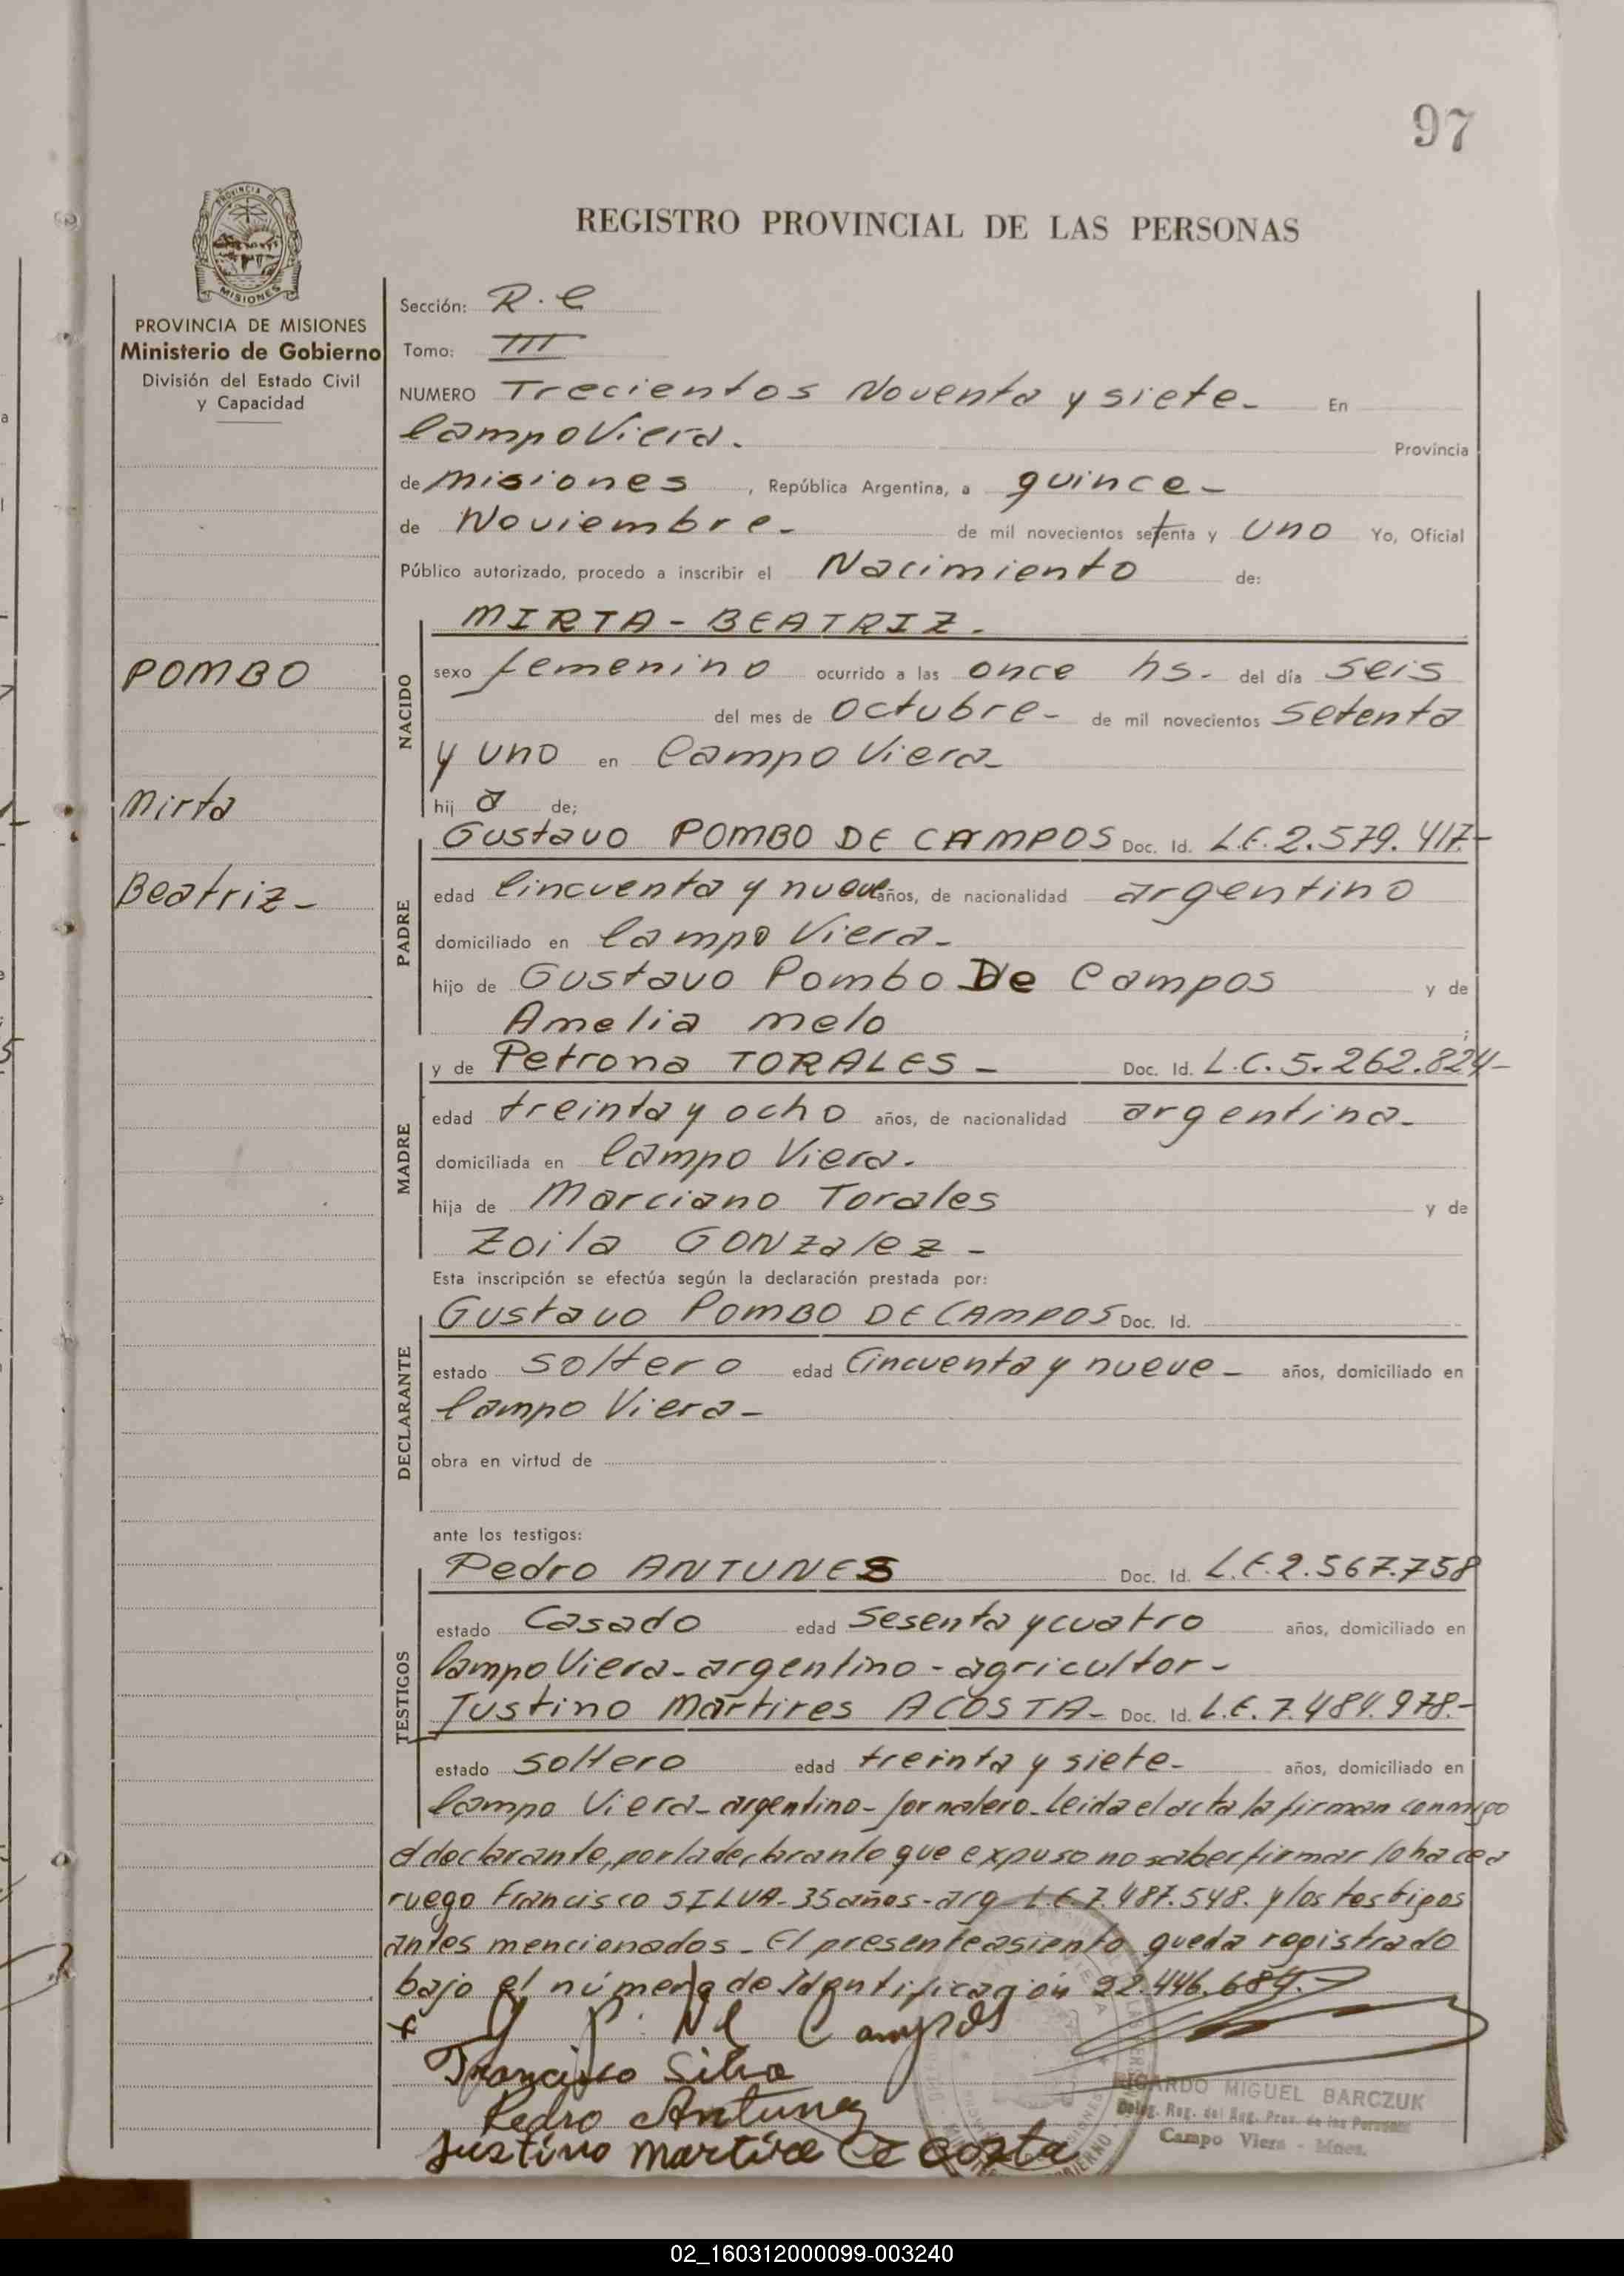 97
REGISTRO PROVINCIAL DE LAS PERSONAS
PROVINCIA DE
MISIONES
PROVINCIA DE MISIONES
Ministerio de Gobierno
División del Estado Civil
y Capacidad
POMBO
Mirta
Beatriz-
Sección: R.C
Tomo: III
NUMERO Trecientos Noventa y siete- En
Campo Viera. Provincia
de Misiones , República Argentina, a quince-
de Noviembre- de mil novecientos setenta y uno Yo, Oficial
Público autorizado, procedo a inscribir el Nacimiento de:
NACIDO
MIRTA - BEATRIZ.
sexo femenino ocurrido a las once hs. del día seis
del mes de octubre- de mil novecientos setenta
y uno en Campo Viera-
hij a de;
PADRE
Gustavo POMBO DE CAMPOS Doc. Id. L.E. 2.579.417.-
edad Cincuenta y nueve años, de nacionalidad argentino
domiciliado en Campo Viera-
hijo de Gustavo Pombo De Campos y de
Amelia Melo ;
MADRE
y de Petrona TORALES - Doc. Id. L.C. 5.262.824-
edad treinta y ocho años, de nacionalidad argentina-
domiciliada en Campo Viera.
hija de Marciano Torales y de
Zoila GONzalez -
Esta inscripción se efectúa según la declaración prestada por:
DECLARANTE
Gustavo POMBO DE CAMPOS Doc. Id.
estado soltero edad Cincuenta y nueve- años, domiciliado en
Campo Viera-
obra en virtud de
ante los testigos:
TESTIGOS
Pedro ANTUNES Doc. Id. L.E. 2.567.758
estado Casado edad Sesenta y cuatro años, domiciliado en
Campo Viera- argentino - agricultor-
Justino Martires ACOSTA- Doc. Id. L.E. 7.484.978.-
estado soltero edad treinta y siete- años, domiciliado en
Campo Viera- argentino- Jornalero- Leida el acta la firman conmigo
el declarante, por la declarante que expuso no saber firmar lo hace a
ruego Francisco SILVA- 35 años- arg L.E. 7.487.548. y los testigos
antes mencionados- El presente asiento queda registrado
bajo el número de Identificación 22.446.684.-
Campos
Francisco Silva
Pedro Antunez
Justino Martire Acosta
RICARDO MIGUEL BARCZUK
Deleg. Reg. del Reg. Prov. de las Personas
Campo Viera - Mnes.
02_160312000099-003240